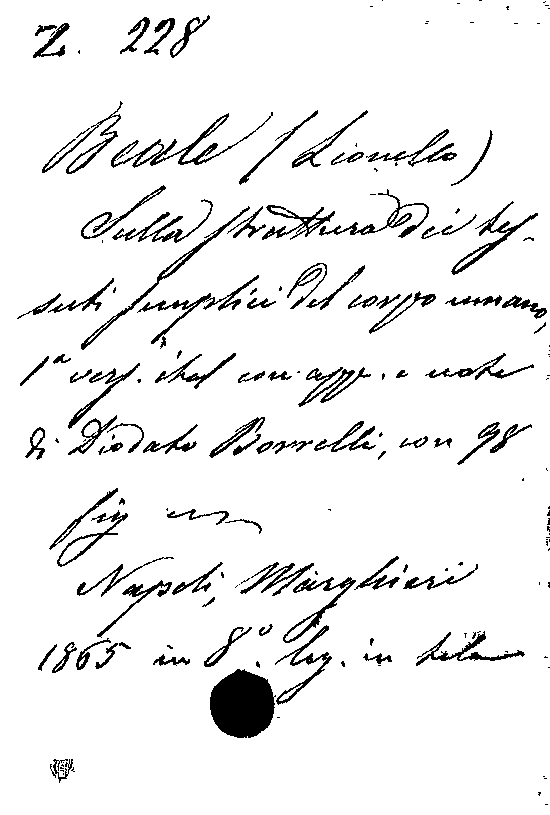 Z. 228
Beale (Lionello)
Sulla struttura dei tes-
suti semplici del corpo umano,
1ª vers. ital con app. e note
di Diodato Borrelli, con 98
fig
Napoli, Marghieri
1865 in 8°. leg. in tela